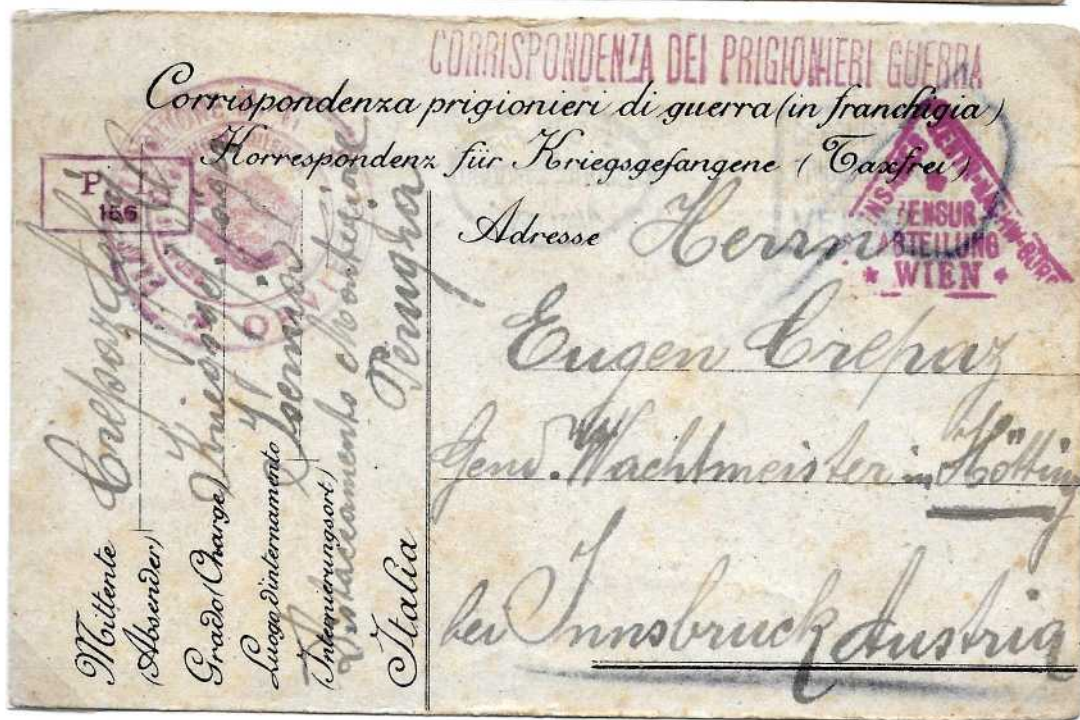 CORRISPONDENZA DEI PRIGIONIERI GUERRA
Corrispondenza prigionieri di guerra (in franchigia)
Korrespondenz für Kriegsgefangene (Taxfrei)
P.
156
ZENSUR
ABTEILUNG
* WIEN *
Adresse
Herrn
Eugen Crepaz
Gend. Wachtmeister in Hötting
bei Innsbruck Austria
Mittente Crepaz
(Absender)
Grado (Charge)
Luogo d'internamento
(Internierungsort)
Distaccamento Montefiore
Perugia
Italia